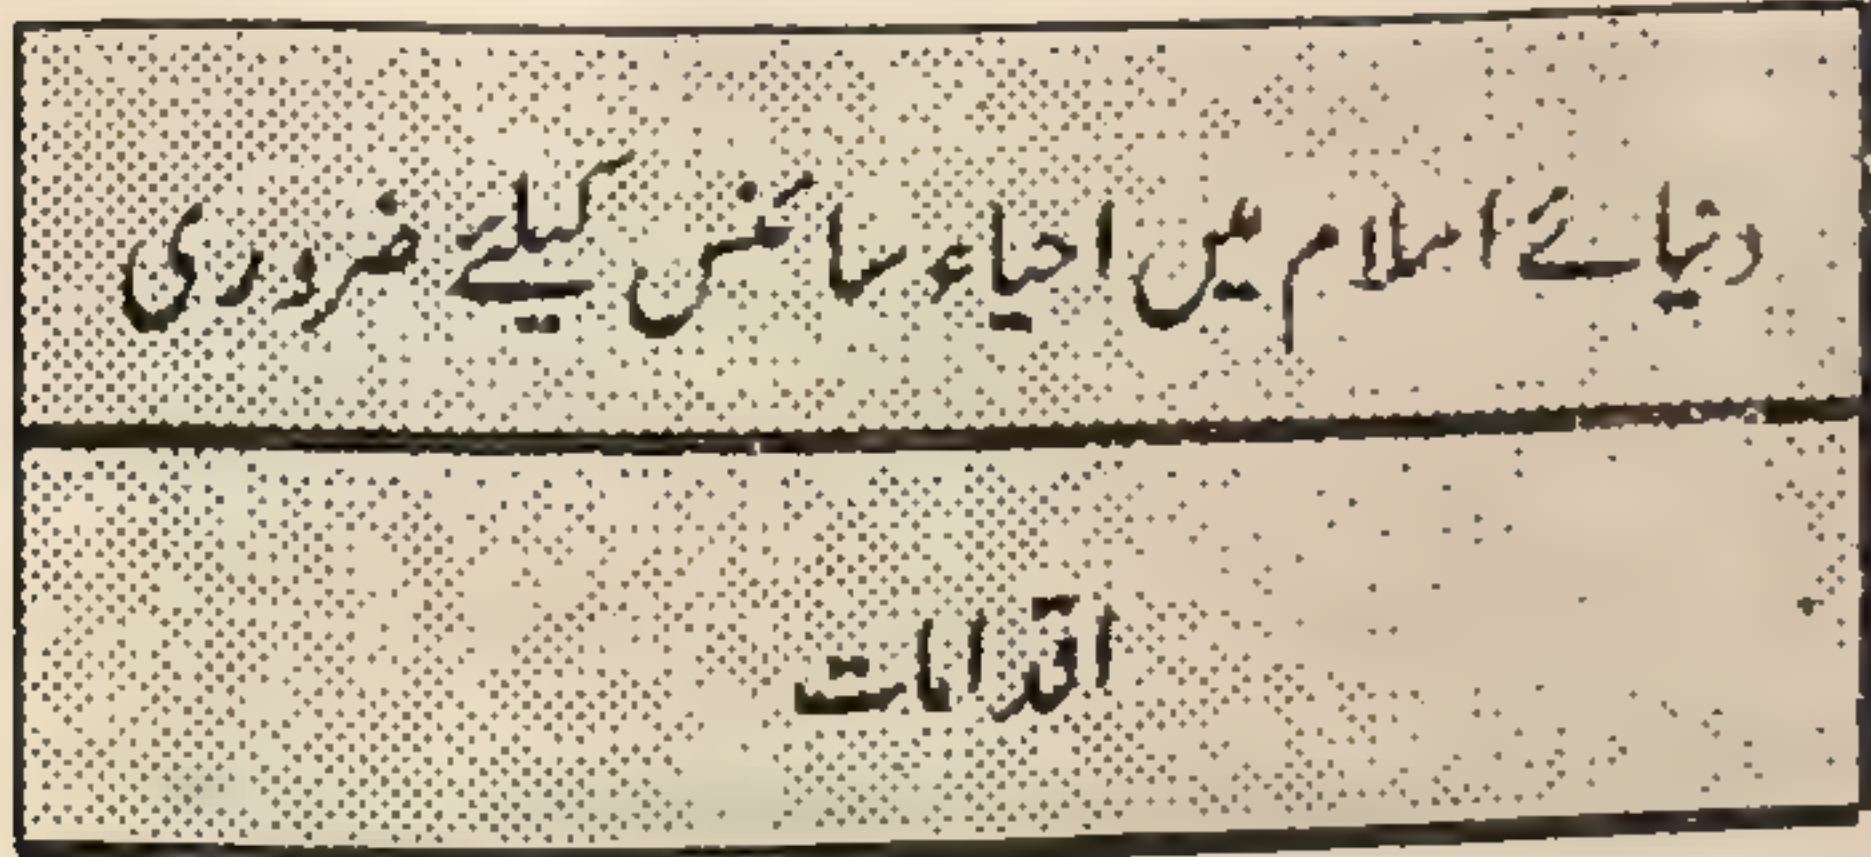 دنیائے اسلام میں احیاء سائنس کیلئے ضروری
اقدامات